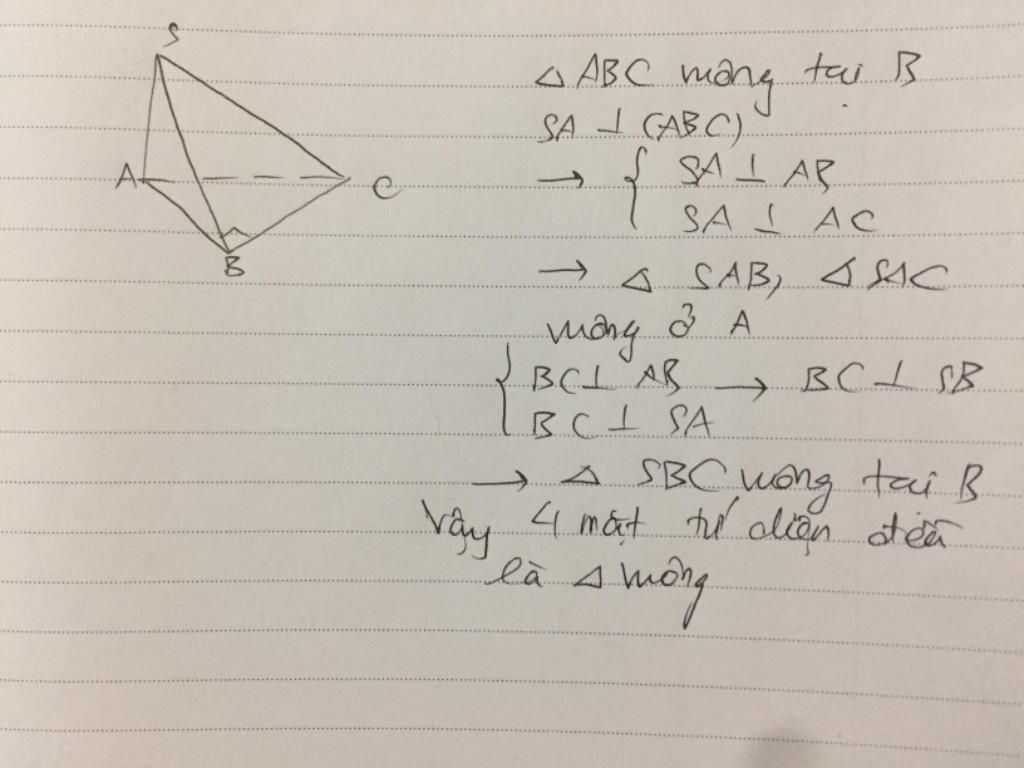 S
A
C
B
△ ABC vuông tại B
SA ⊥ (ABC)
→ { SA ⊥ AB
SA ⊥ AC
→ △ SAB, △ SAC
vuông ở A
{ BC ⊥ AB → BC ⊥ SB
BC ⊥ SA
→ △ SBC vuông tại B
Vậy 4 mặt tứ diện đều
là △ vuông